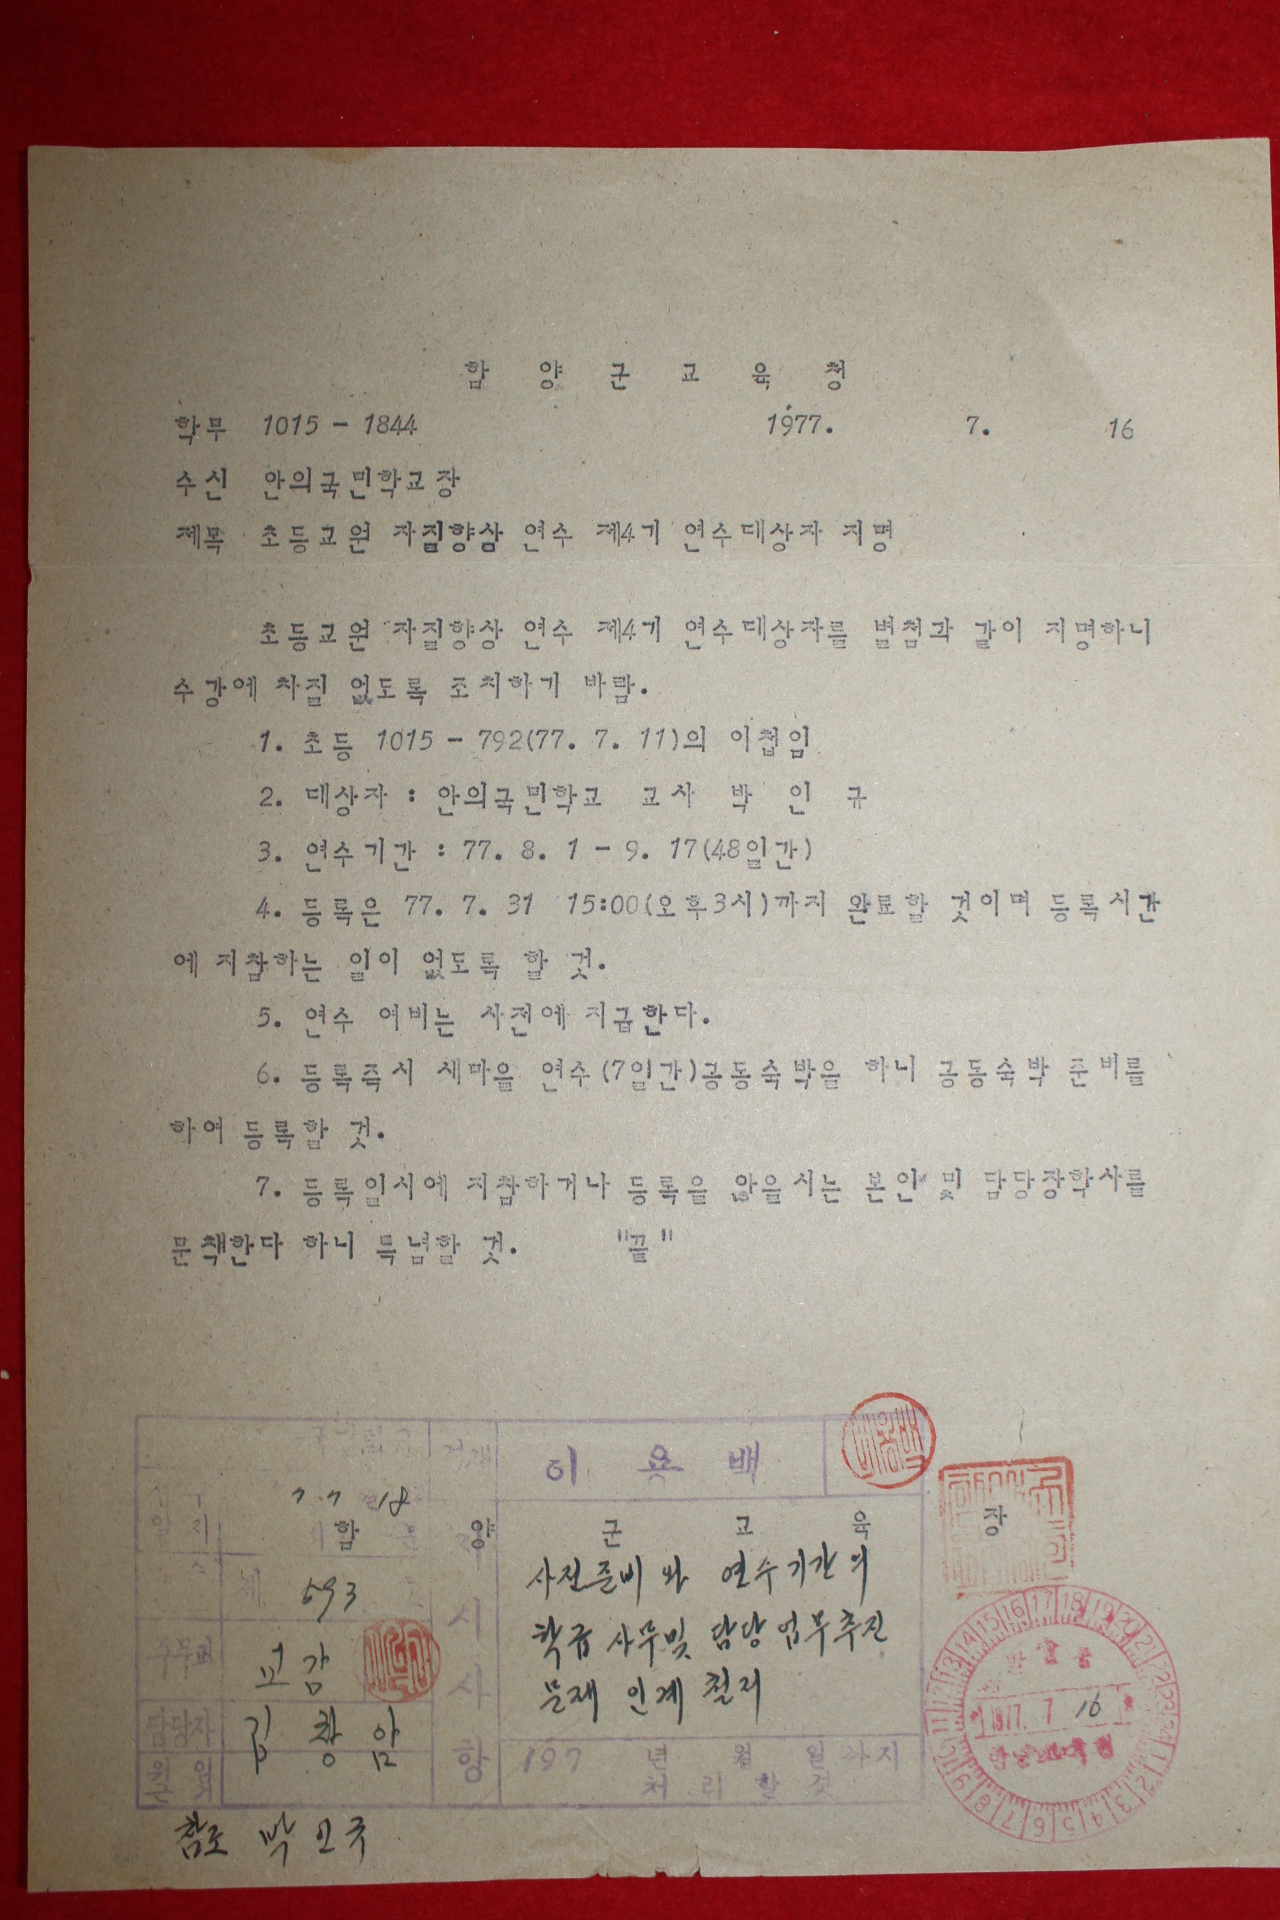 함 양 군 교 육 청
학무 1015 - 1844 1977. 7. 16
수신 안의국민학교장
제목 초등교원 자질향상 연수 제4기 연수대상자 지명
초등교원 자질향상 연수 제4기 연수대상자를 별첨과 같이 지명하니
수강에 차질 없도록 조치하기 바람.
1. 초등 1015 - 792(77. 7. 11)의 이첩임
2. 대상자 : 안의국민학교 교사 박 인 규
3. 연수기간 : 77. 8. 1 - 9. 17(48일간)
4. 등록은 77. 7. 31 15:00(오후3시)까지 완료할 것이며 등록시간
에 지참하는 일이 없도록 할 것.
5. 연수 여비는 사전에 지급한다.
6. 등록즉시 새마을 연수(7일간)공동숙박을 하니 공동숙박 준비를
하여 등록할 것.
7. 등록일시에 지참하거나 등록을 않을시는 본인 및 담당장학사를
문책한다 하니 특념할 것. "끝"
이 용 배
77 18
함 양 군 교 육 장
제 593
사전준비와 연수기간의
학급사무및 담당업무추진
문제 인계 철저
교감
지시사항
담당자 김창암
197 년 월 일까지
처 리 할 것
1977. 7 16
참조 박인규